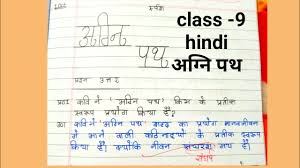 class -9
hindi
अग्नि पथ
अग्नि
पथ
प्रश्न उत्तर
प्रश्न1 कवि ने 'अग्नि पथ' किस के प्रतीक
स्वरूप प्रयोग किया है?
उ01 कवि ने 'अग्नि पथ' शब्द का प्रयोग मानव जीवन
में आने वाली कठिनाइयों के प्रतीक स्वरूप
किया है। क्योंकि जीवन संघर्ष मय है।